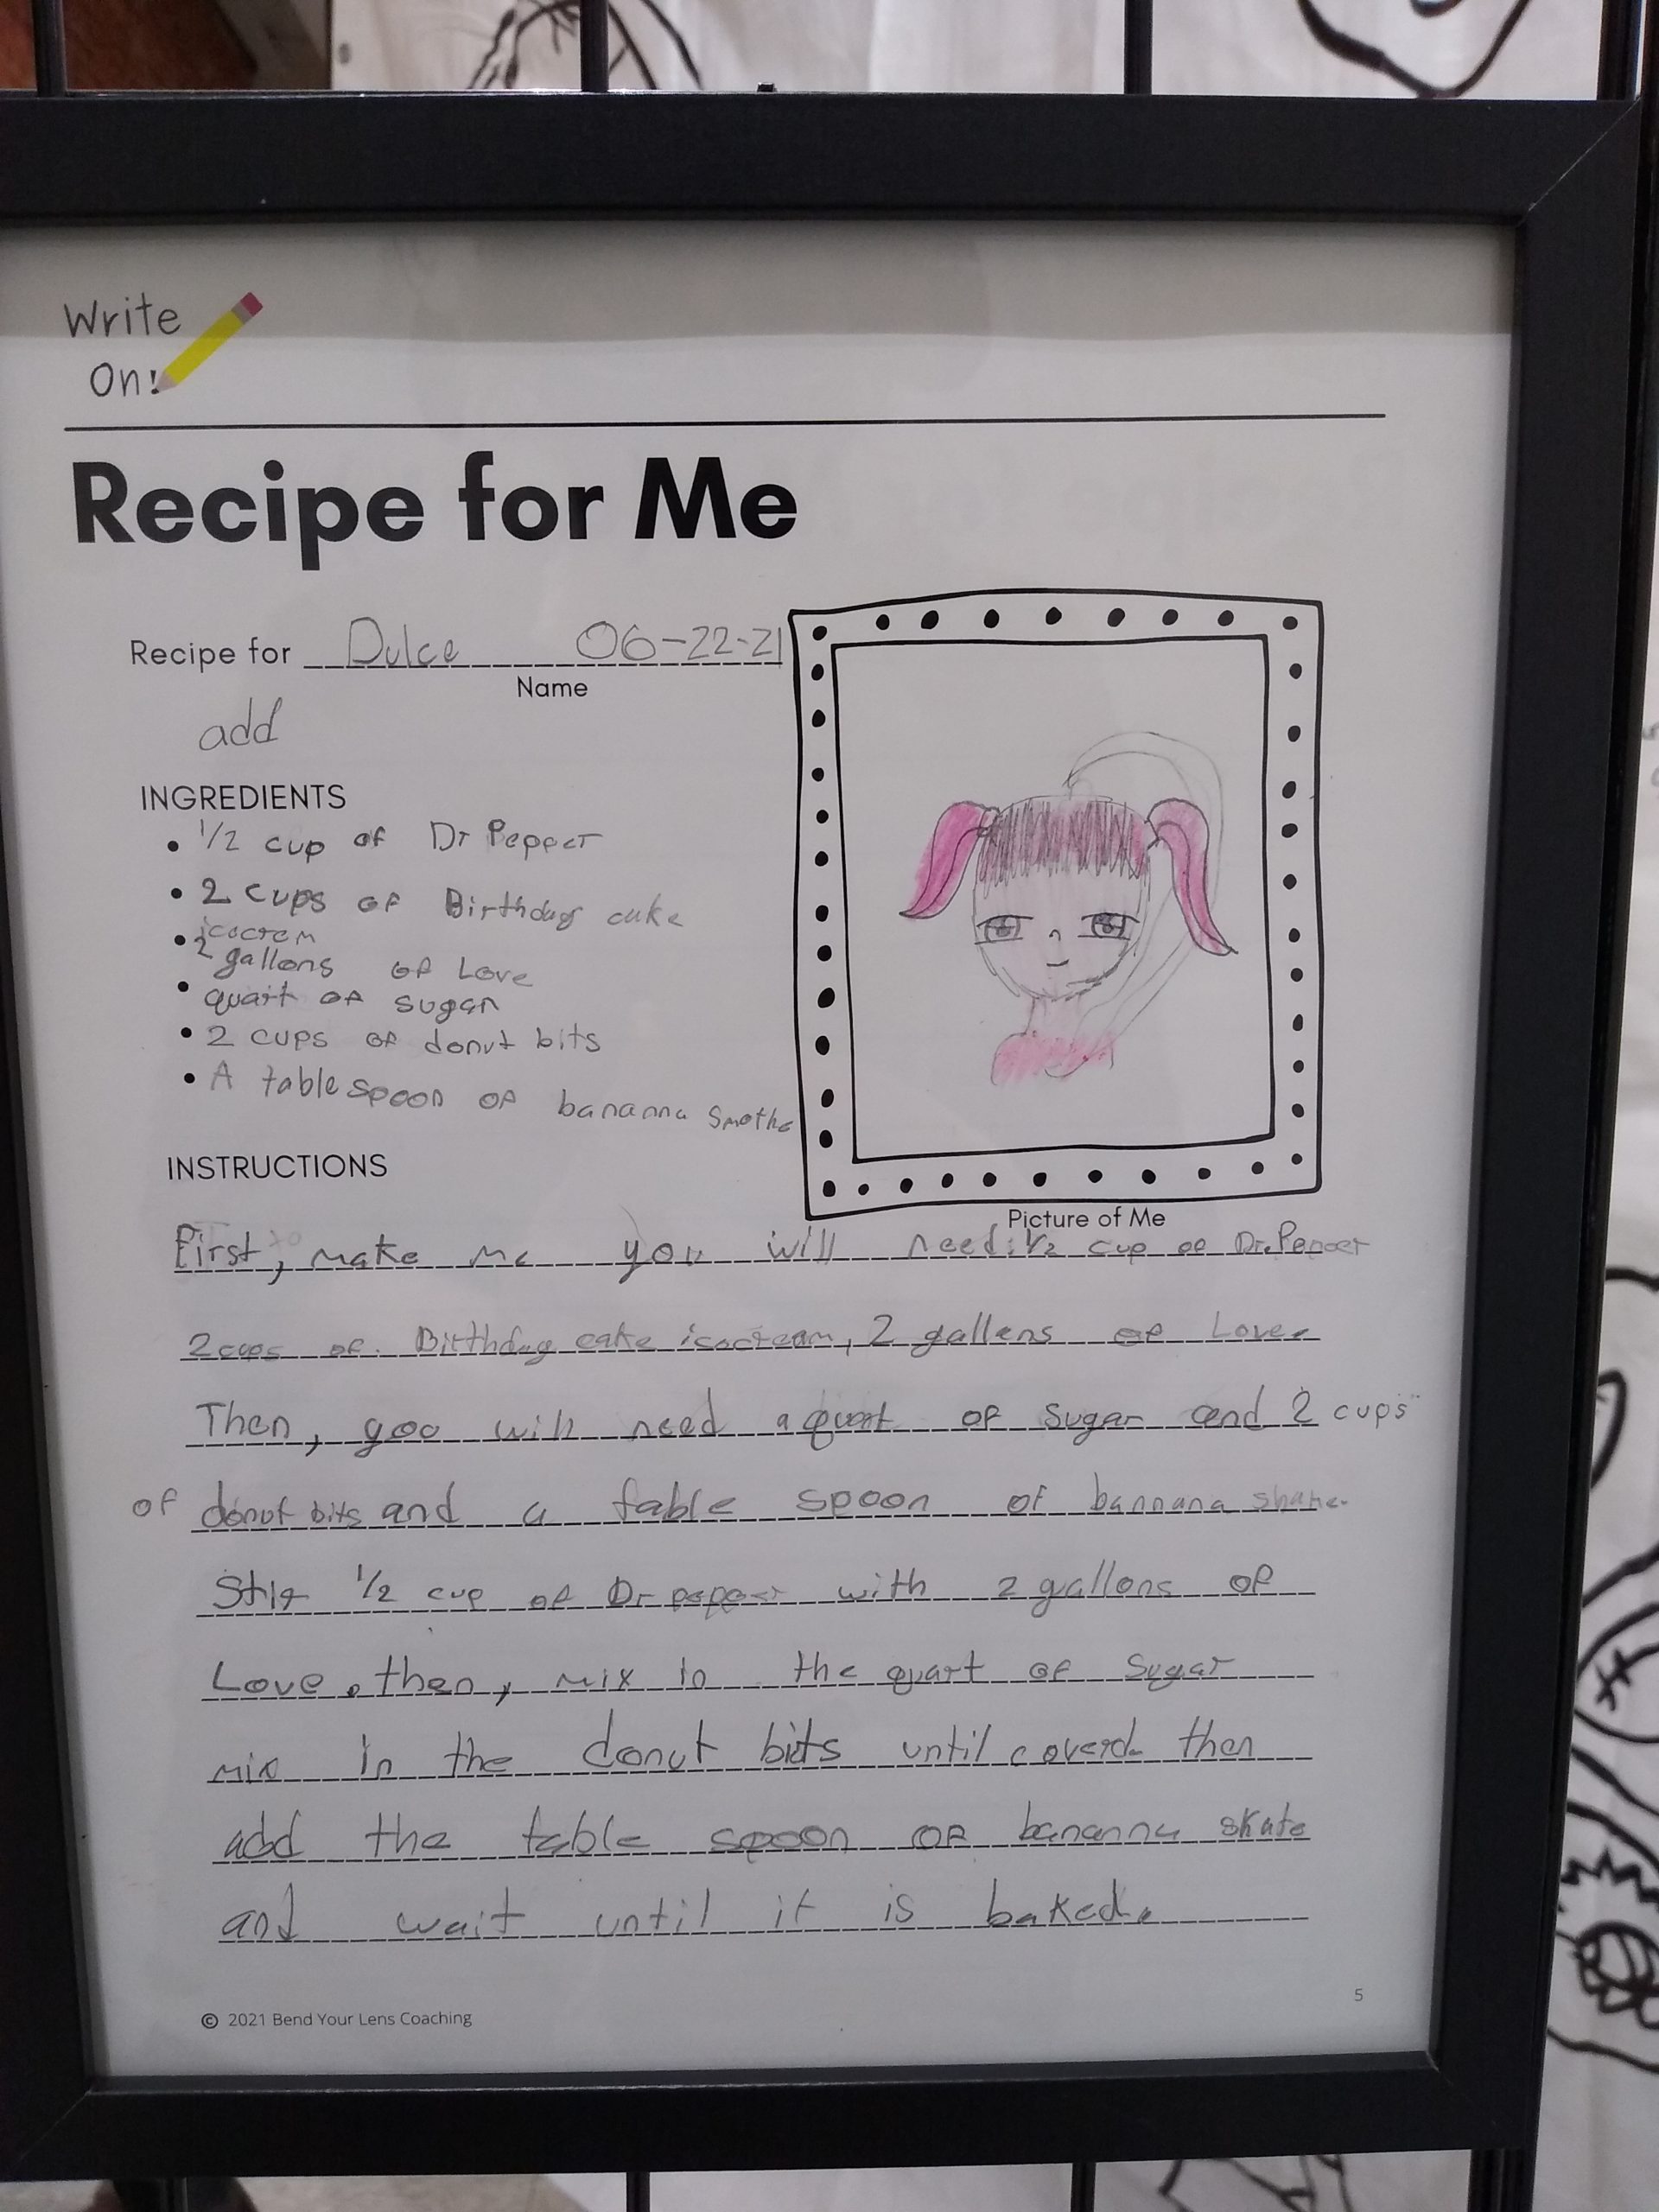 Write
On!
Recipe for Me
Recipe for Dulce 06-22-21
Name
add
INGREDIENTS
• 1/2 cup of Dr Pepper
• 2 cups of Birthday cake
icecrem
• 2 gallons of Love
• quart of sugar
• 2 cups of donut bits
• A table spoon of bananna Smothe
INSTRUCTIONS
Picture of Me
First, make me you will need: 1/2 cup of Dr. Pepper
2 cups of Birthday cake icecream, 2 gallens of Love.
Then, you will need a quart of sugar and 2 cups
of donut bits and a table spoon of bannana shake.
Stir 1/2 cup of Dr pepper with 2 gallons of
Love. then, mix in the quart of Sugar
mix in the donut bits until coverd. then
add the table spoon of bananna
and wait until it is baked.
© 2021 Bend Your Lens Coaching
5